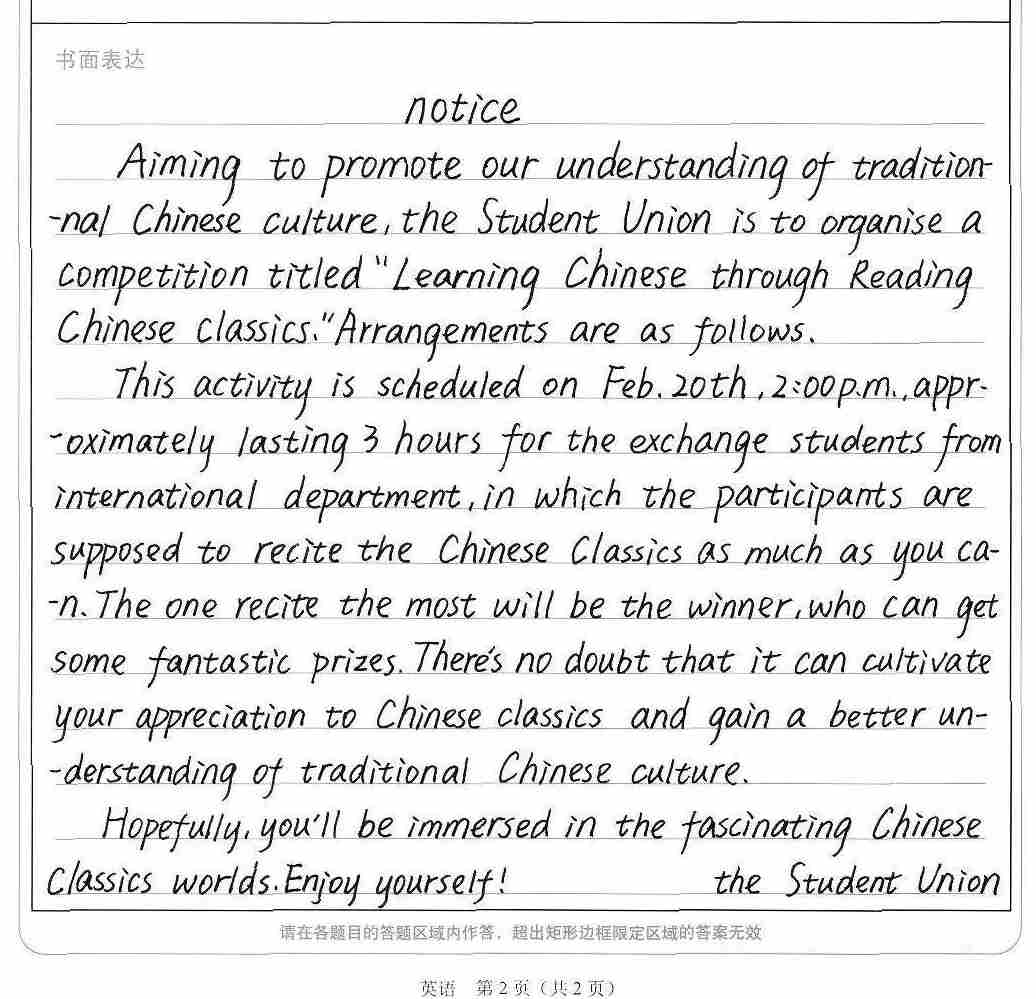 书面表达
notice
Aiming to promote our understanding of tradition-
-nal Chinese culture, the Student Union is to organise a
competition titled "Learning Chinese through Reading
Chinese classics." Arrangements are as follows.
This activity is scheduled on Feb. 20th, 2:00p.m., appr-
-oximately lasting 3 hours for the exchange students from
international department, in which the participants are
supposed to recite the Chinese Classics as much as you ca-
-n. The one recite the most will be the winner, who can get
some fantastic prizes. There's no doubt that it can cultivate
your appreciation to Chinese classics and gain a better un-
-derstanding of traditional Chinese culture.
Hopefully, you'll be immersed in the fascinating Chinese
Classics worlds. Enjoy yourself! the Student Union
请在各题目的答题区域内作答，超出矩形边框限定区域的答案无效
英语 第2页（共2页）